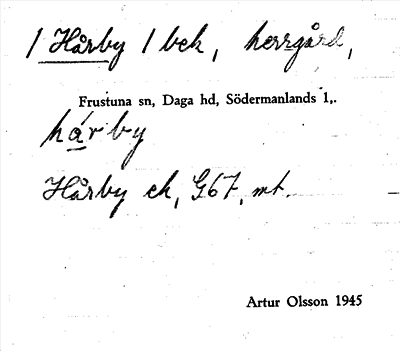 1 Hårby 1 bek, herrgård,
Frustuna sn, Daga hd, Södermanlands l,.
hárby
Hårby ek, G67, mt.
Artur Olsson 1945